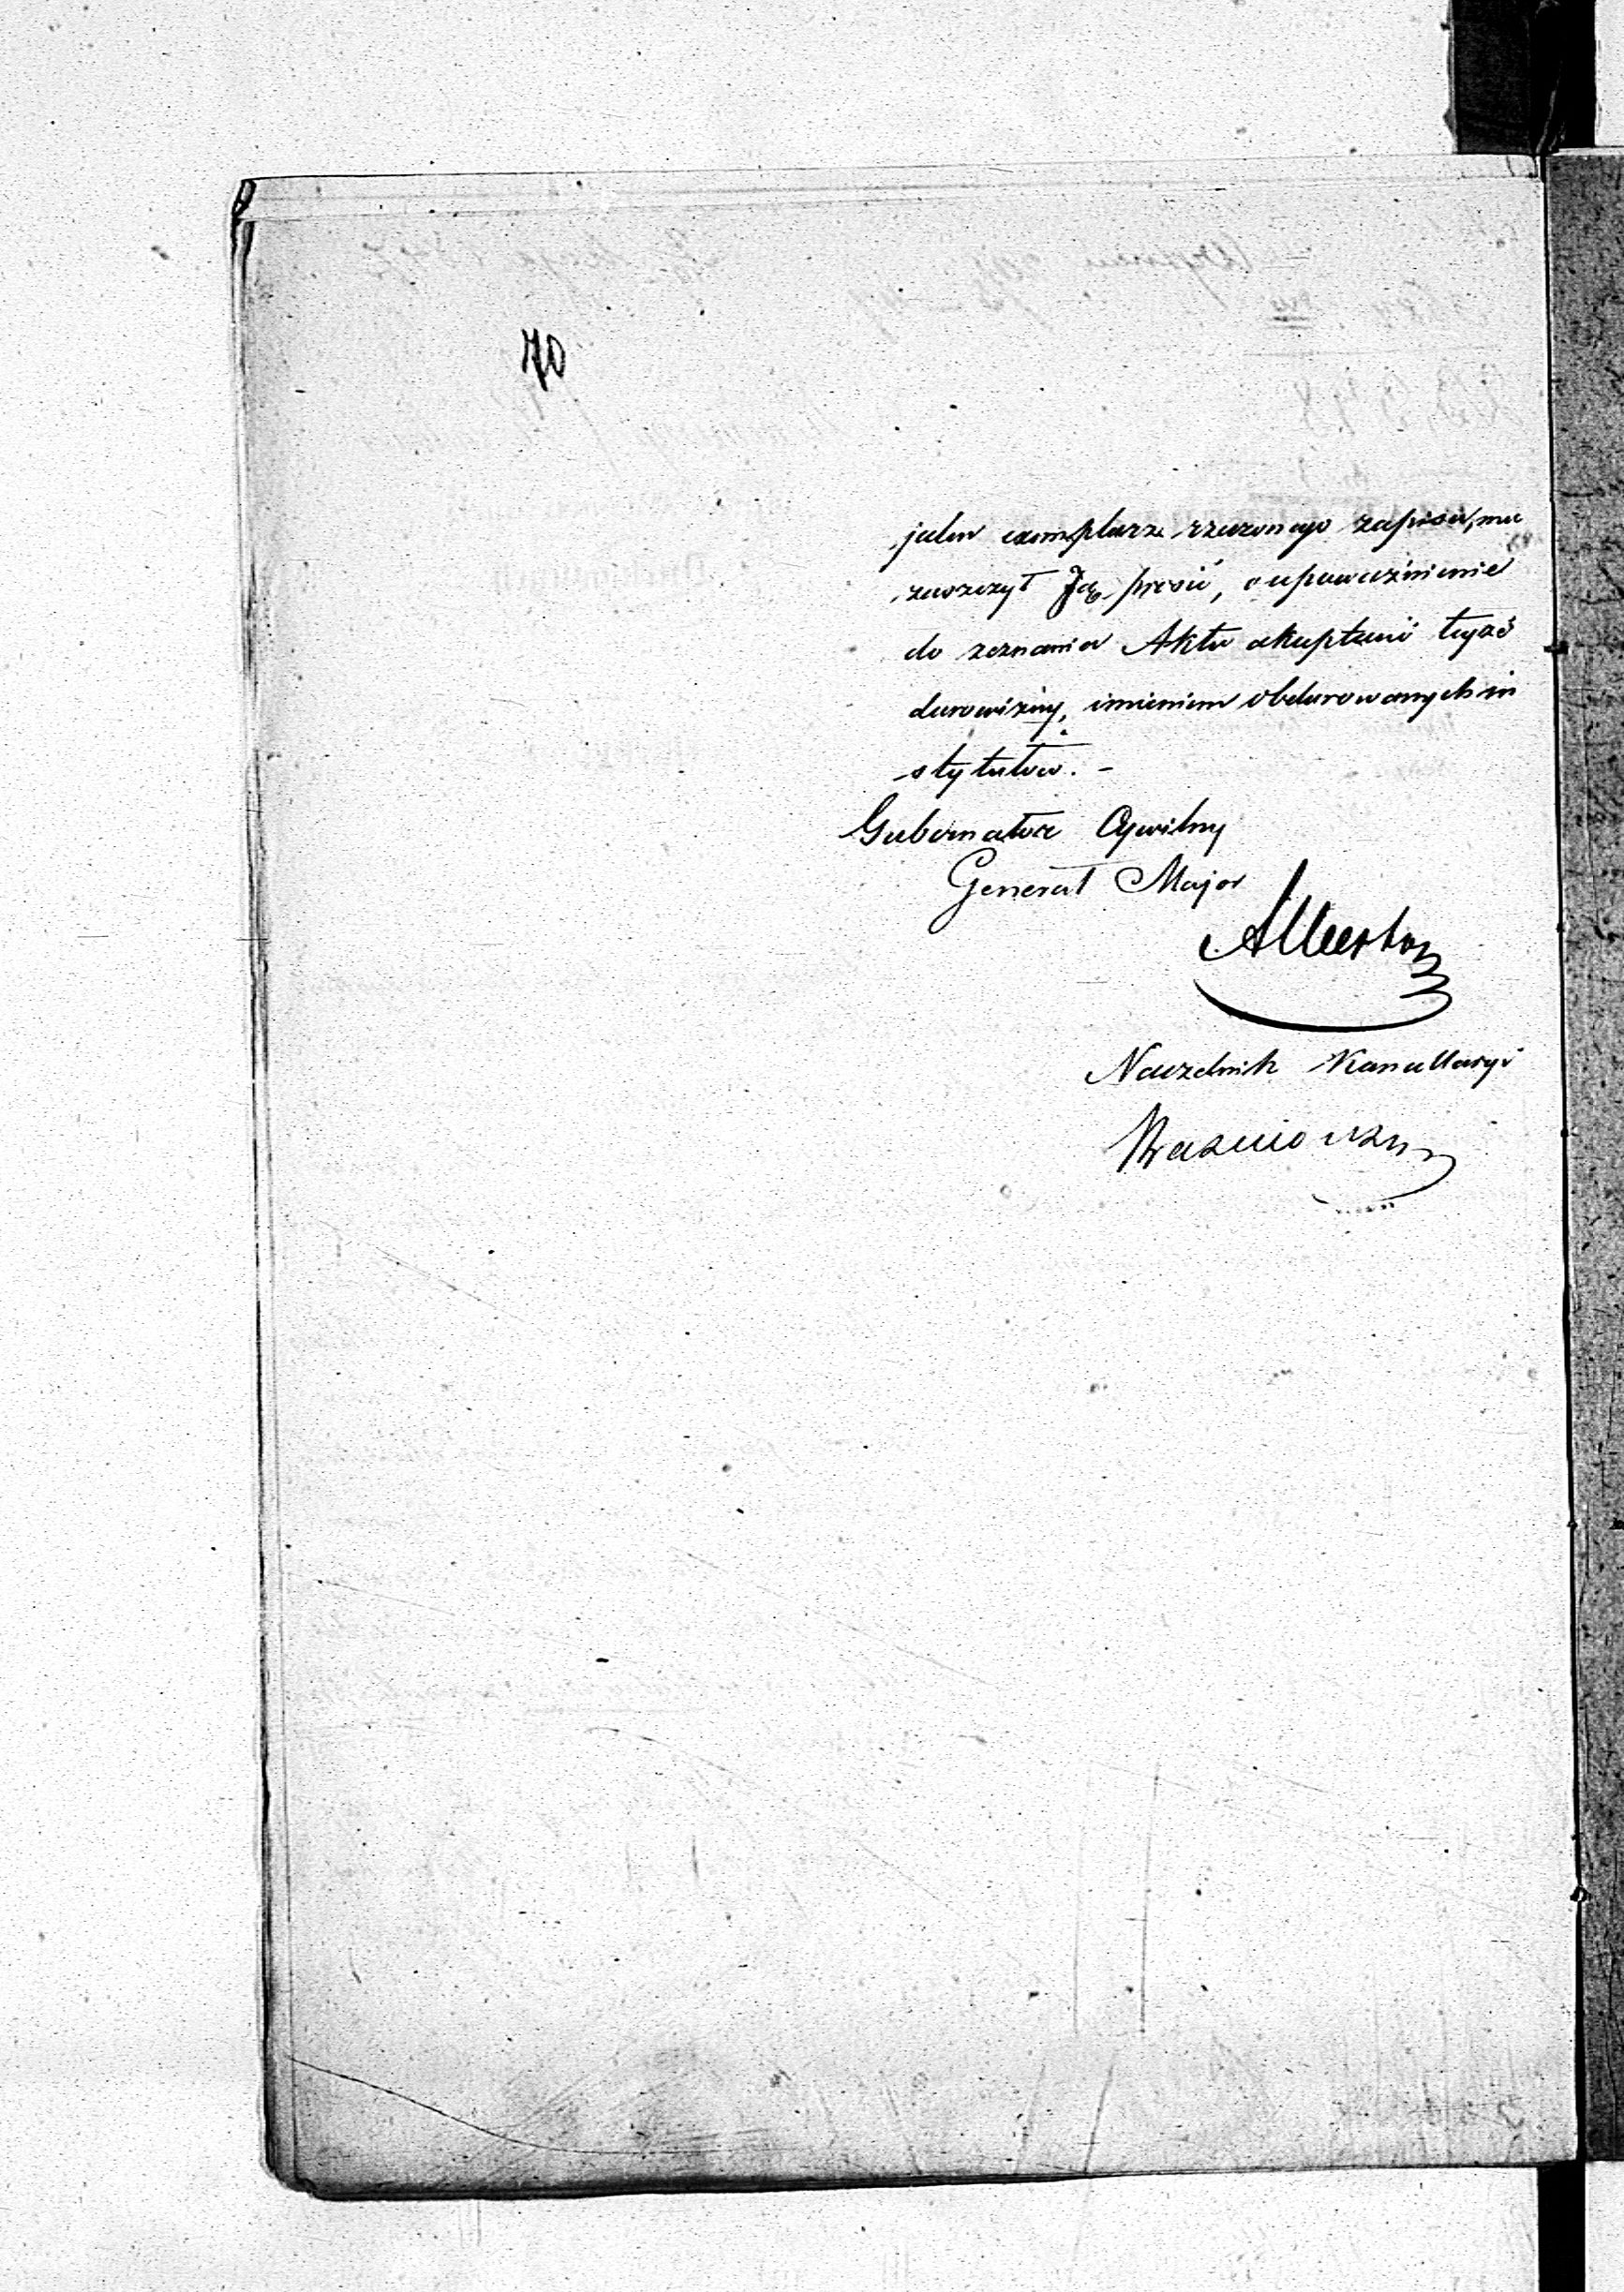 70
jeden exemplarz rzeczonego zapisu, ma
zaszczyt Ją prosić, o upoważnienie
do zeznania Aktu akceptacii tejże
darowizny, imieniem obdarowanych in
stytutów. -
Gubernator Cywilny
Generał Major
Naczelnik Kancellaryi